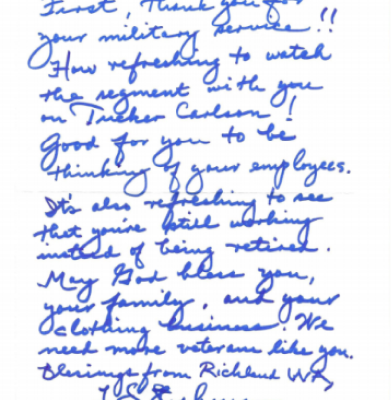 First, thank you for
your military service!!
How refreshing to watch
the segment with you
on Tucker Carlson!
Good for you to be
thinking of your employees.
It's also refreshing to see
that you're still working
instead of being retired.
May God bless you,
your family, and your
clothing business. We
need more veterans like you.
Blessings from Richland WA,